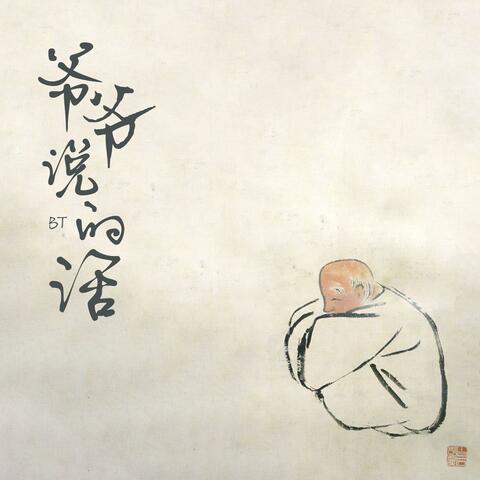 爷爷说的话
BT